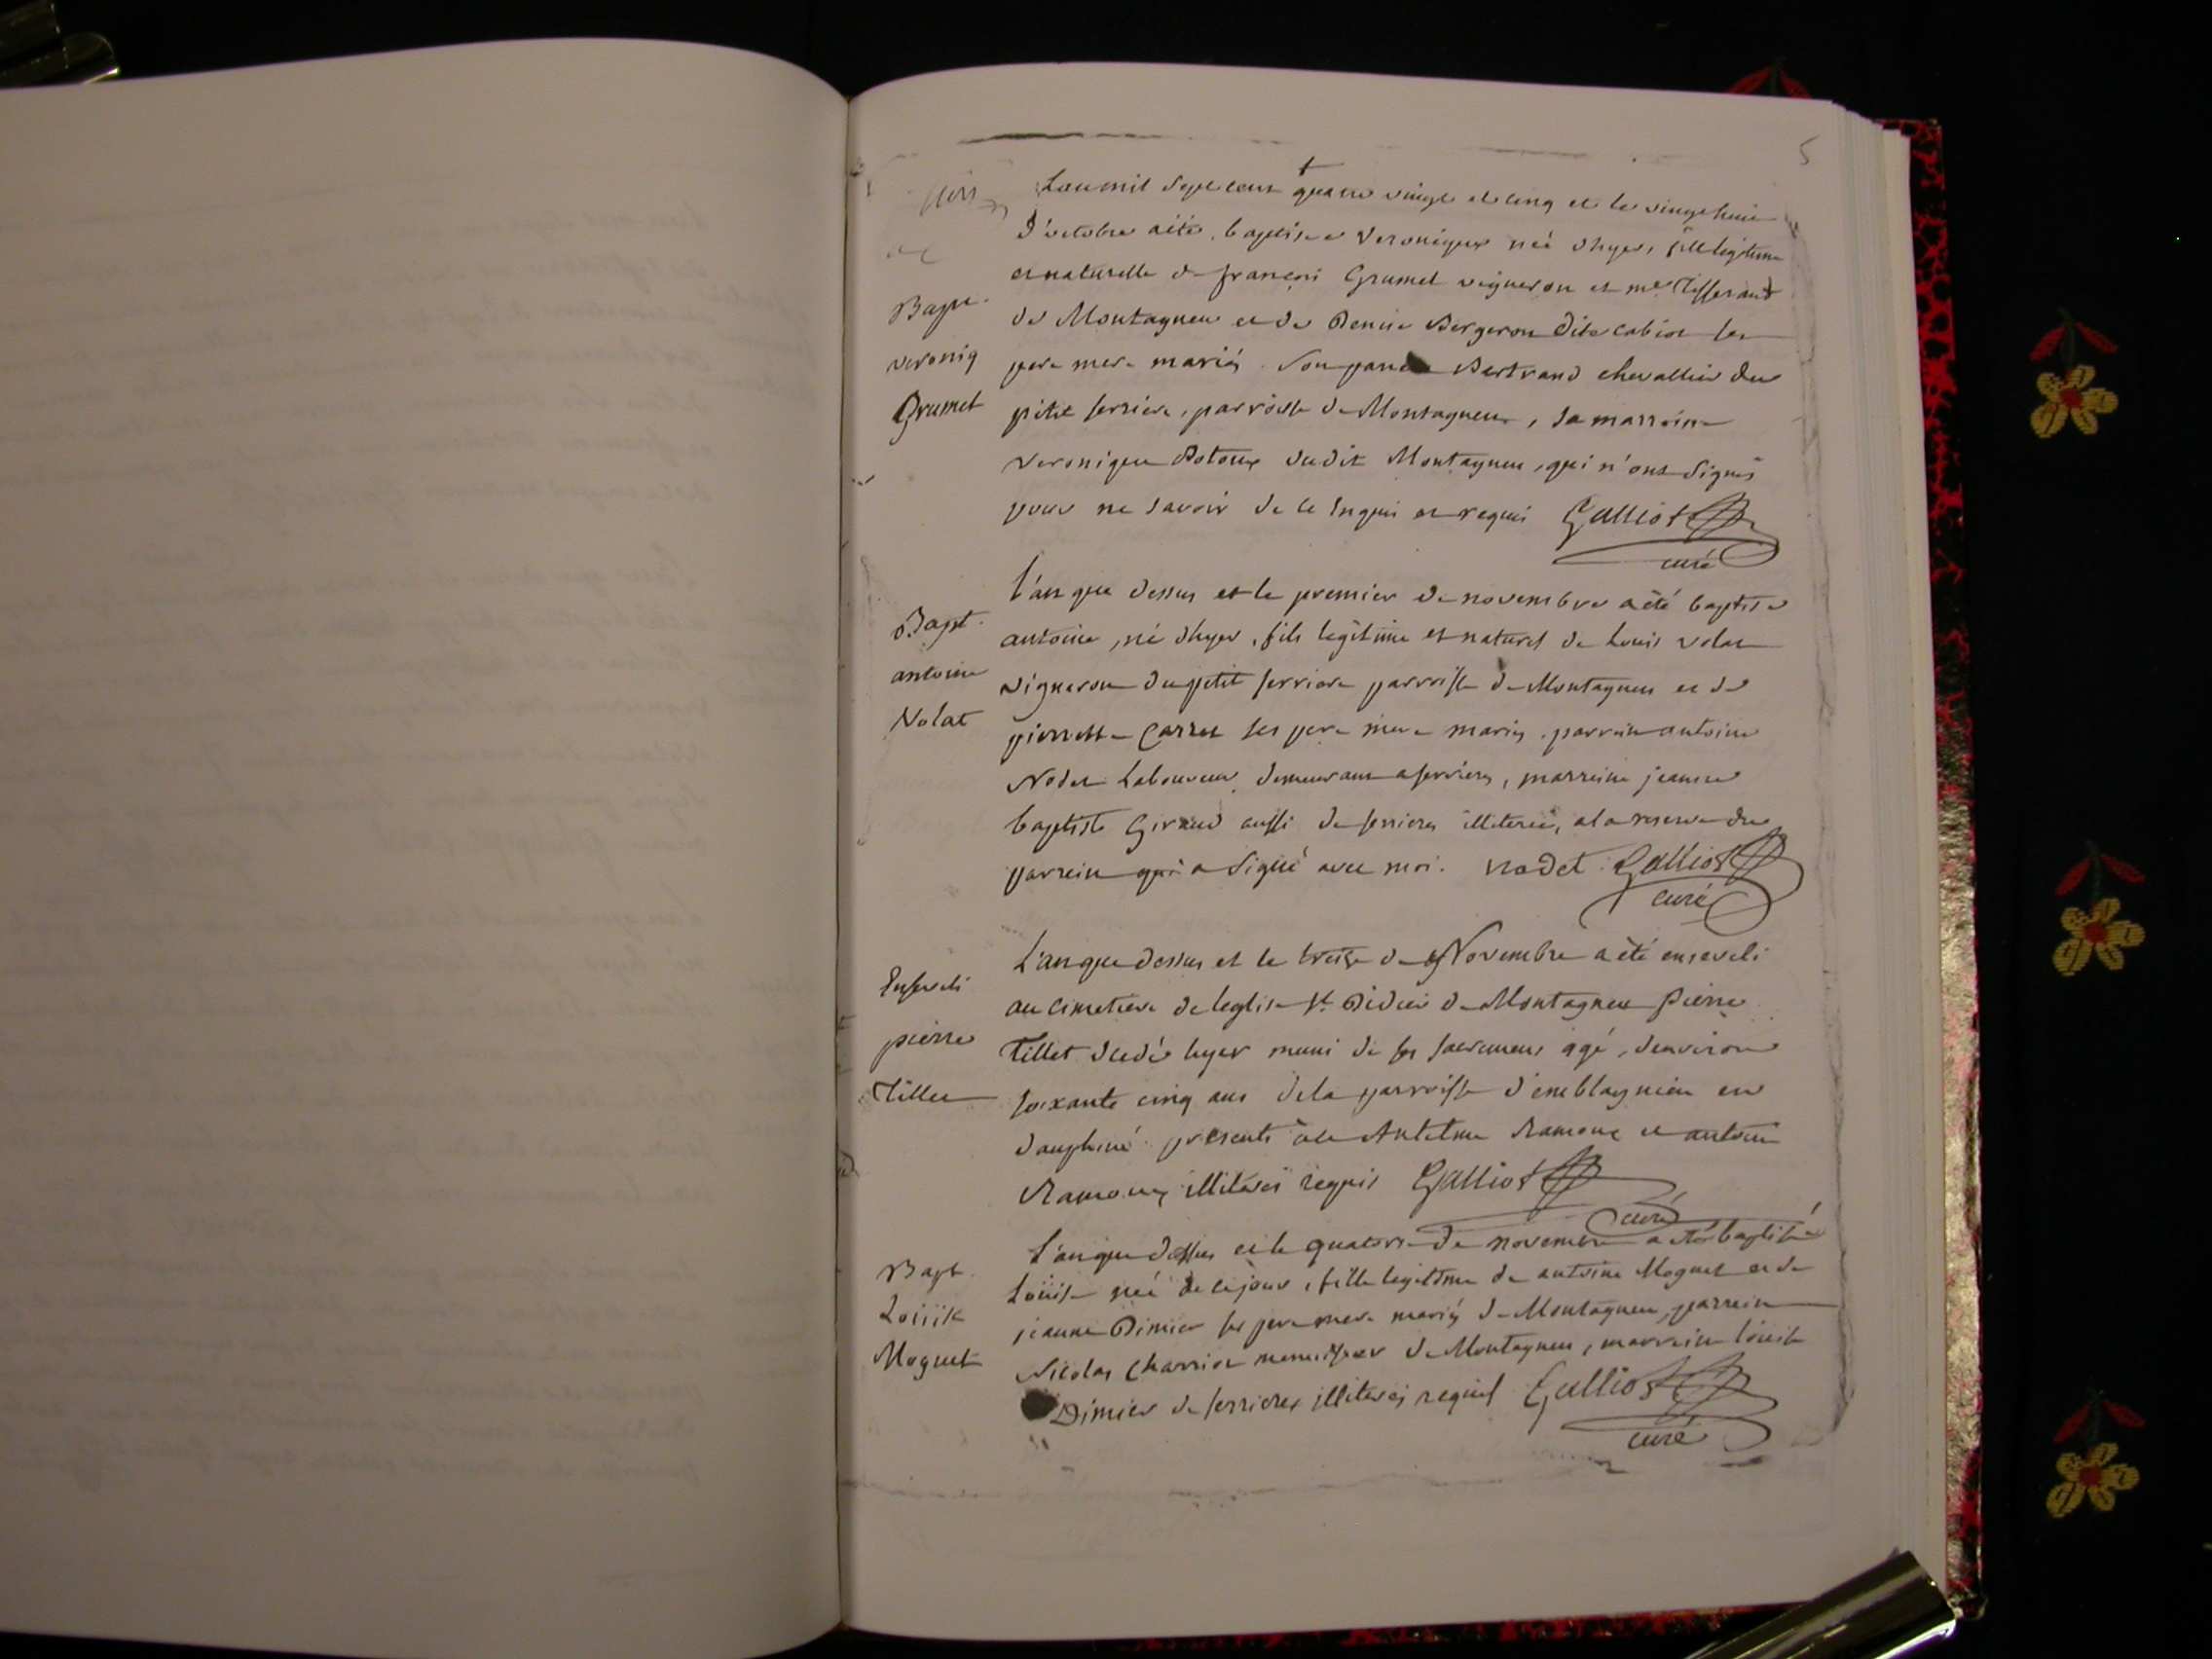 5
L'an mil sept cent quatre vingt et cinq et le vingt huit
d'octobre a été baptisée Veronique née d'hyer, fille legitime
et naturelle de françois Grumet vigneron et me Tisserand
de Montagneu et de Denise Bergeron dite cabiot ses
pere mere mariés. Son parrein Bertrand chevallier du
petit serriere, parroisse de Montagneu, sa marreine
Veronique Botoux dudit Montagneu, qui n'ont signés
pour ne savoir de ce enquis et requis Galliot
curé
Bapt.
veroniq
Grumet
L'an que dessus et le premier de novembre a été baptisé
antoine, né d'hyer, fils legitime et naturel de Louis volat
vigneron du petit serriere parroisse de Montagneu et de
pierrette Carret ses pere mere mariés. parrein antoine
Nodet Laboureur, demeurant a serrieres, marreine jeanne
baptiste Giraud aussi de serrieres illiterés, a la reserve du
parrein qui a signé avec moi. nodet Galliot
curé
Bapt.
antoine
Volat
L'an que dessus et le treize de Novembre a été enseveli
au cimetiere de leglise st Didier de Montagneu pierre
Tillet decedé hyer muni de ses sacremens agé, denviron
soixante cinq ans de la parroisse d'emblagnieu en
dauphiné presents a ce Antelme Ramoux et antoine
Ramoux illiterés requis Galliot
curé
Enseveli
pierre
Tillet
L'an que dessus et le quatorze de novembre a été baptisée
Loüise née de ce jour, fille legitime de antoine Moguet et de
jeanne Dimier ses pere mere mariés de Montagneu, parrein
Nicolas Charriot menuisier de Montagneu, marreine loüise
Dimier de serrieres illiterés requis Galliot
curé
Bapt.
Loüise
Moguet